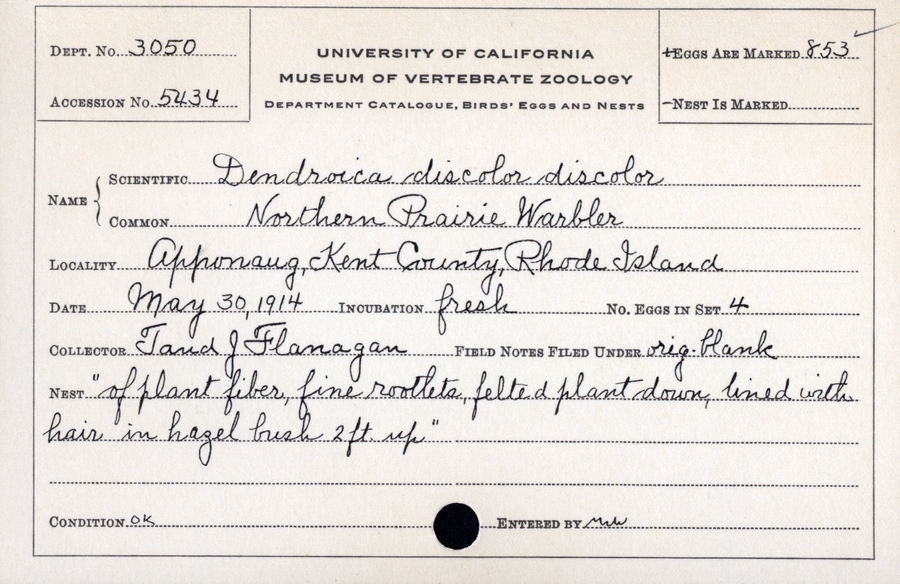 DEPT. NO. 3050
ACCESSION NO. 5434
UNIVERSITY OF CALIFORNIA
MUSEUM OF VERTEBRATE ZOOLOGY
DEPARTMENT CATALOGUE, BIRDS' EGGS AND NESTS
EGGS ARE MARKED 853
NEST IS MARKED
NAME
SCIENTIFIC Dendroica discolor discolor
COMMON Northern Prairie Warbler
LOCALITY Apponaug, Kent County, Rhode Island
DATE May 30, 1914 INCUBATION fresh NO. EGGS IN SET 4
COLLECTOR J and J Flanagan FIELD NOTES FILED UNDER orig. blank
NEST "of plant fiber, fine rootlets, felted plant down, lined with
hair in hazel bush 2 ft. up"
CONDITION OK ENTERED BY